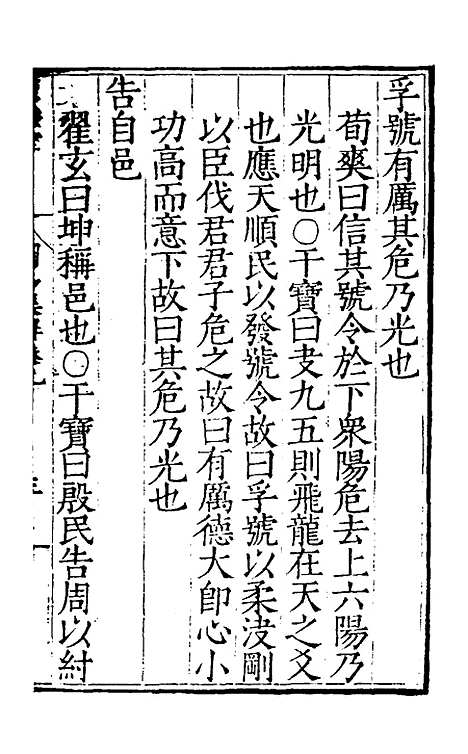 孚號有厲其危乃光也
荀爽曰信其號令於下衆陽危去上六陽乃
光明也○干寶曰夬九五則飛龍在天之爻
也應天順民以發號令故曰孚號以柔決剛
以臣伐君君子危之故曰有厲德大即心小
功高而意下故曰其危乃光也
告自邑
翟玄曰坤稱邑也○干寶曰殷民告周以紂